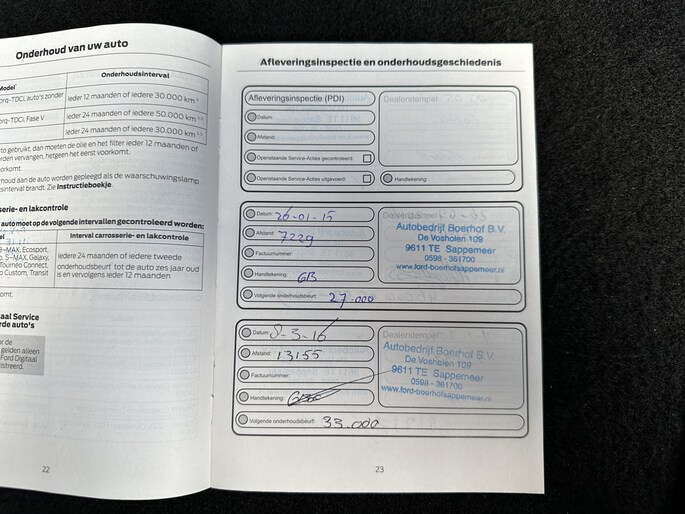 Onderhoud van uw auto
Model
Onderhoudsinterval
orq-TDCi, auto's zonder
Ieder 12 maanden of iedere 30.000 km
orq-TDCi, Fase V
Ieder 24 maanden of iedere 50.000 km
Ieder 24 maanden of iedere 30.000 km
to gebruikt, dan moeten de olie en het filter ieder 12 maanden of
rden vervangen, hetgeen het eerst voorkomt.
houd aan de auto worden gepleegd als de waarschuwingslamp
sinterval brandt. Zie Instructieboekje
serie- en lakcontrole
auto moet op de volgende intervallen gecontroleerd worden:
el
Interval carrosserie- en lakcontrole
B-MAX, Ecosport,
o, S-MAX, Galaxy,
Tourneo Connect,
o Custom, Transit
Iedere 24 maanden of iedere tweede
onderhoudsbeurt tot de auto zes jaar oud
is en vervolgens ieder 12 maanden
omt.
aal Service
rde auto's
or de
gelden alleen
Ford Digitaal
istreerd.
22
Afleveringsinspectie en onderhoudsgeschiedenis
Afleveringsinspectie (PDI)
Dealerstempel:
Datum:
Afstand:
Openstaande Service-Acties gecontroleerd:
Openstaande Service-Acties uitgevoerd:
Handtekening:
Datum: 26-01-15
Afstand: 7229
Factuurnummer:
Handtekening: GB
Volgende onderhoudsbeurt: 27.000
Autobedrijf Boerhof B.V.
De Vosholen 109
9611 TE Sappemeer
0598 - 361700
www.ford-boerhofsappemeer.nl
Datum: 8-3-16
Afstand: 13155
Factuurnummer:
Handtekening:
Volgende onderhoudsbeurt: 33.000
Dealerstempel:
Autobedrijf Boerhof B.V.
De Vosholen 109
9611 TE Sappemeer
0598 - 361700
www.ford-boerhofsappemeer.nl
23